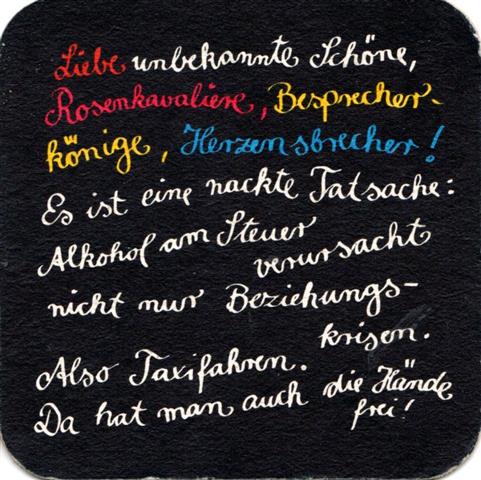 Liebe unbekannte Schöne,
Rosenkavaliere, Besprecher-
könige, Herzensbrecher!
Es ist eine nackte Tatsache:
Alkohol am Steuer
verursacht
nicht nur Beziehungs-
krisen.
Also Taxifahren.
Da hat man auch die Hände
frei!